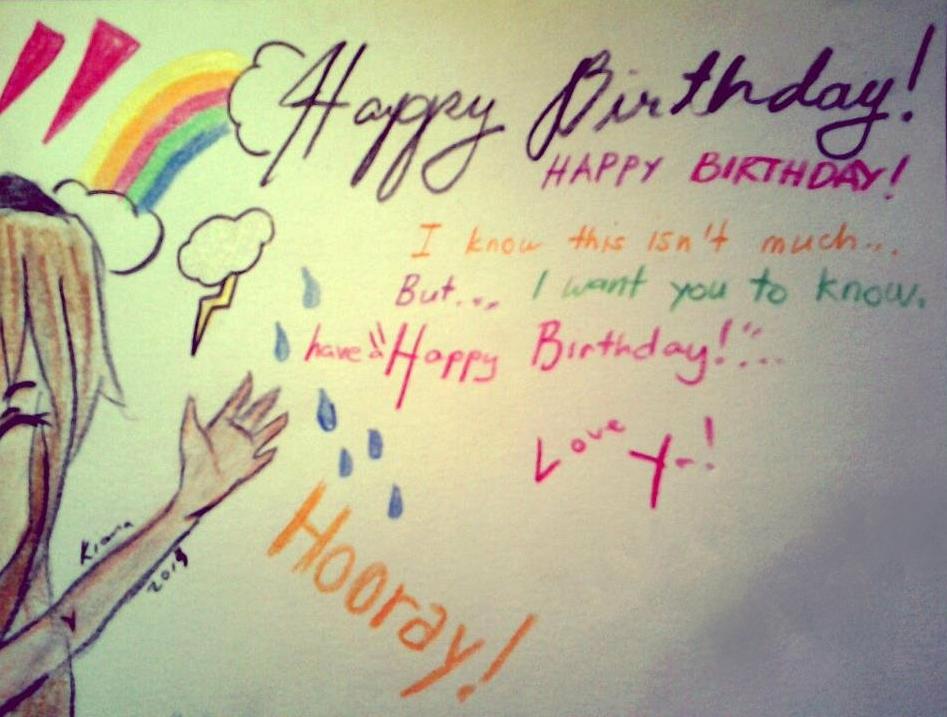 Happy Birthday!
HAPPY BIRTHDAY!
I know this isn't much...
But... I want you to know.
have a "Happy Birthday!"...
Love Y-!
Hooray!
Kiana